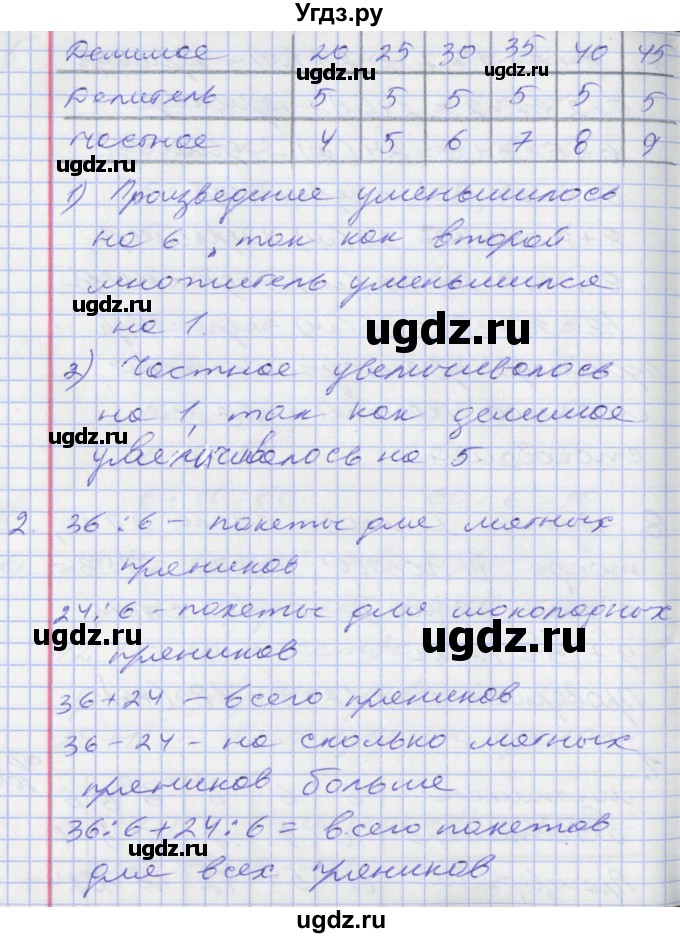 Угдз.ру
Делимое 20 25 30 35 40 45
Делитель 5 5 5 5 5 5
Частное 4 5 6 7 8 9
1) Произведение уменьшилось
на 6, так как второй
множитель уменьшился
на 1.
2) Частное увеличивалось
на 1, так как делимое
увеличивалось на 5.
2. 36:6 – пакеты для мятных
пряников
24:6 – пакеты для шоколадных
пряников
36+24 – всего пряников
36-24 – на сколько мятных
пряников больше
36:6+24:6= всего пакетов
для всех пряников
ugdz.ru
ugdz.ru
ugdz.ru
ugdz.ru
ugdz.ru
ugdz.ru
ugdz.ru
ugdz.ru
ugdz.ru
ugdz.ru